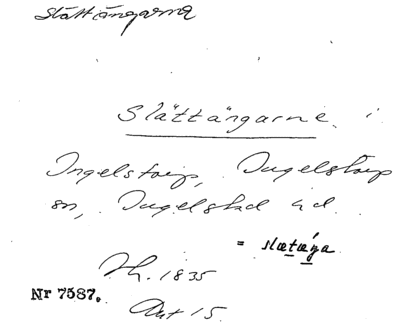 Slättängarna
Slättängarne i
Ingelstorp, Ingelstorp
sn, Ingelstad hd.
= slætæŋa
Sk. 1835
Nr 7587.
Akt 15.